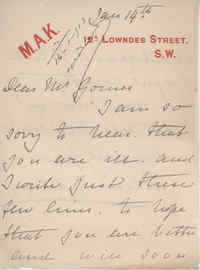 M.A.K.
Jan 19th
12A Lowndes Street,
S.W.
Dear Mr
I am so
sorry to hear that
you are ill and
I write just these
few lines to hope
that you are better
and will soon